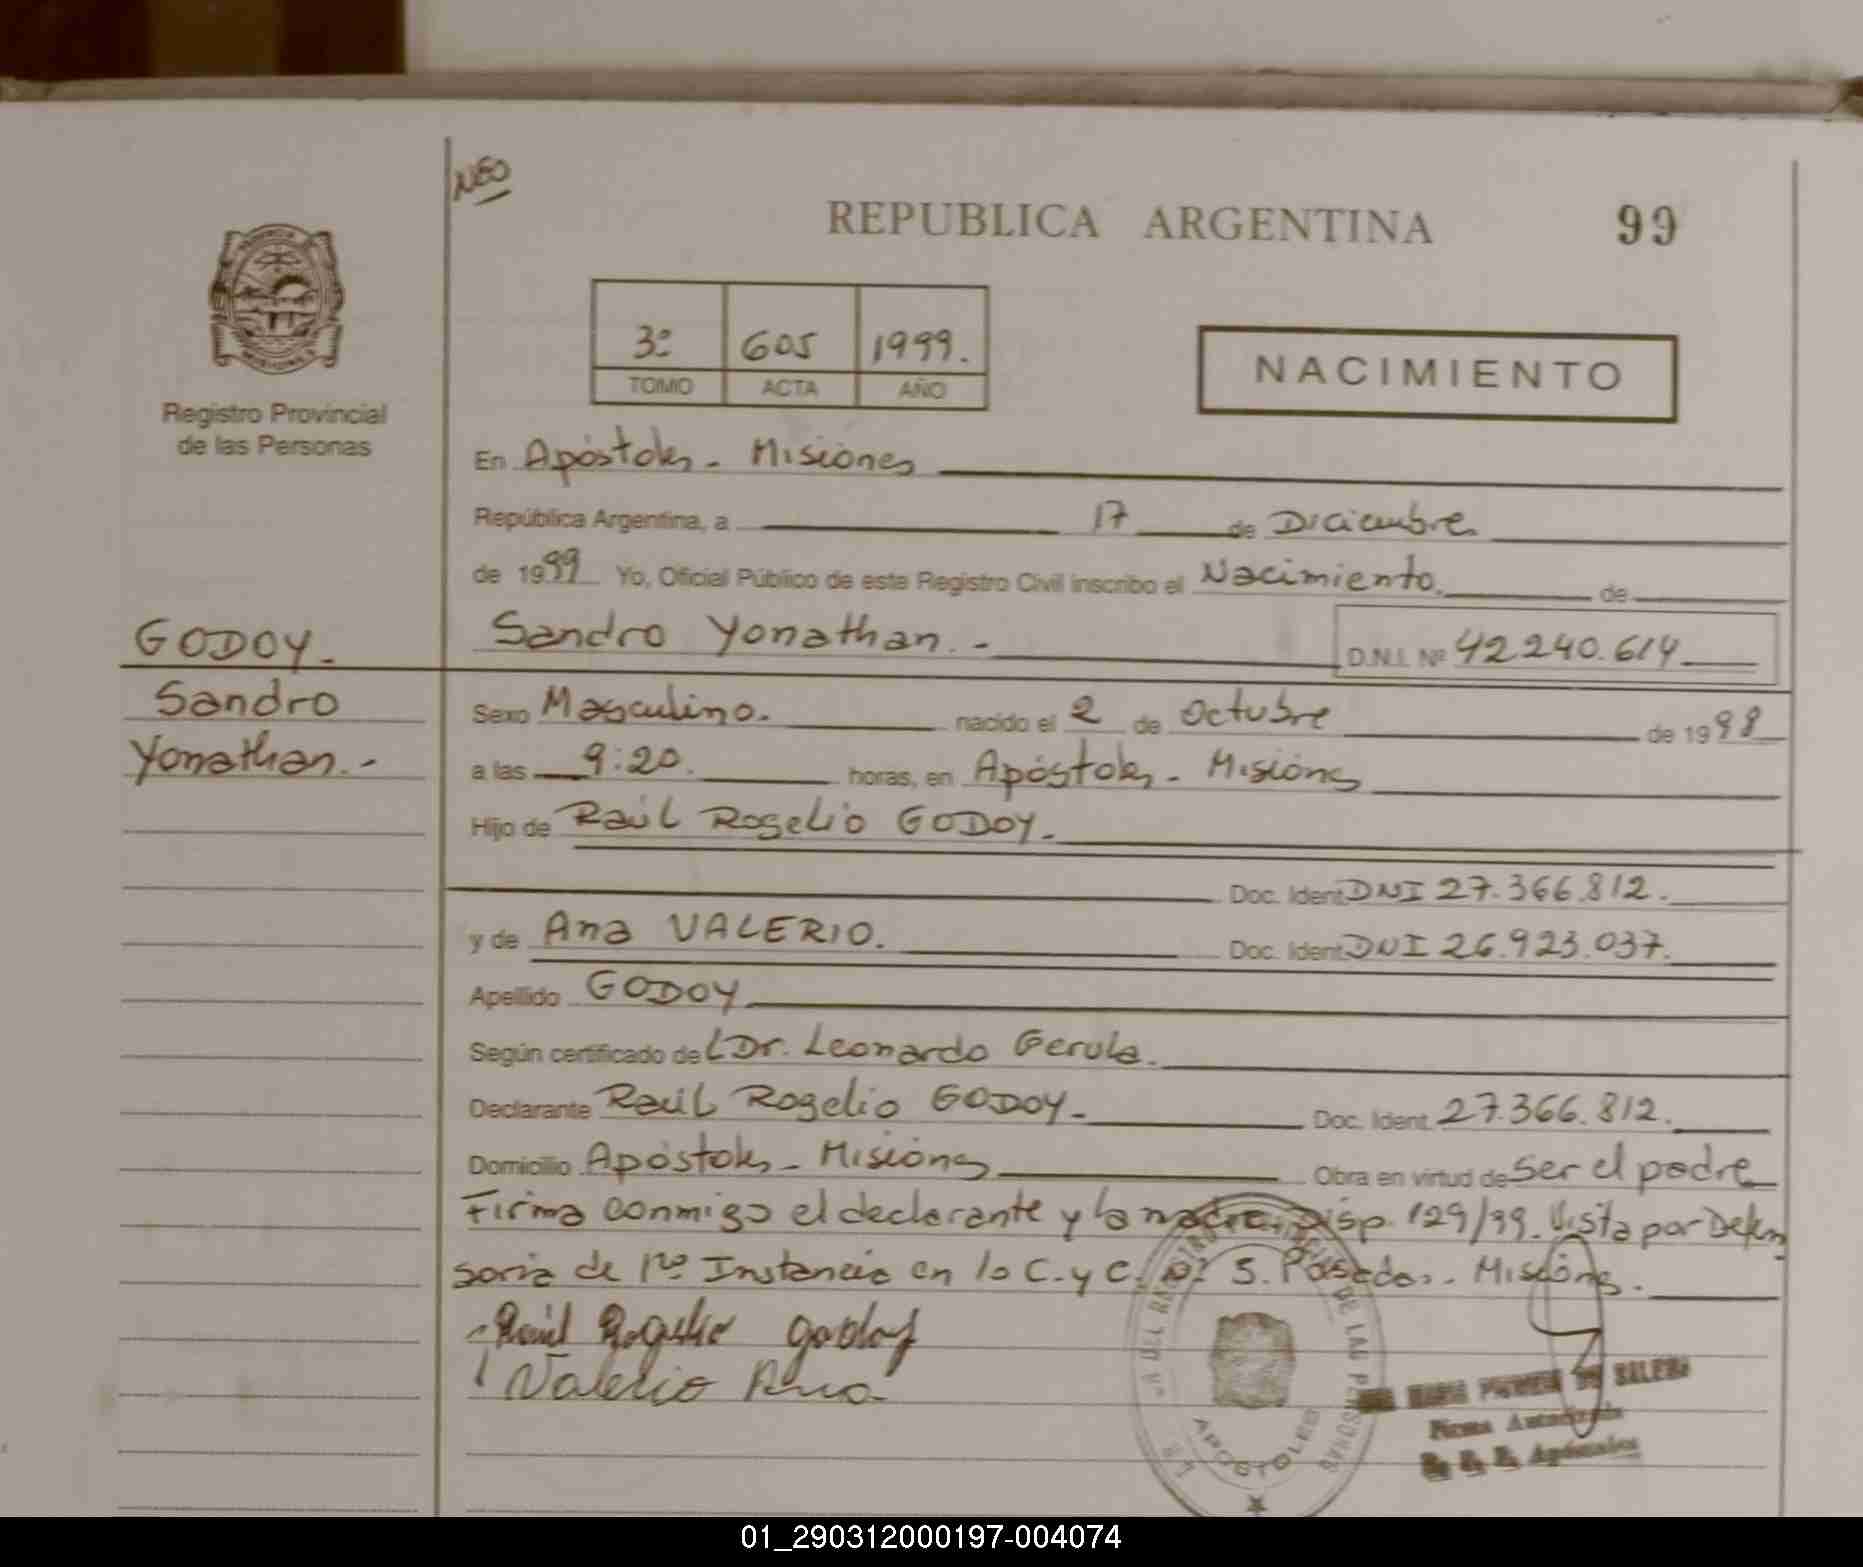 NEO
REPUBLICA ARGENTINA 99
3º 605 1999.
TOMO ACTA AÑO
NACIMIENTO
Registro Provincial
de las Personas
En Apóstoles - Misiones
República Argentina, a 17 de Diciembre
de 1999 Yo, Oficial Público de este Registro Civil inscribo el Nacimiento. de
GODOY.- Sandro Yonathan.- D.N.I. Nº 42240.614
Sandro
Yonathan.-
Sexo Masculino. nacido el 2 de Octubre de 1998
a las 9:20. horas, en Apóstoles - Misiones
Hijo de Raúl Rogelio GODOY.
Doc. Ident. DNI 27.366.812.
y de Ana VALERIO. Doc. Ident. DNI 26.923.037.
Apellido GODOY
Según certificado del Dr. Leonardo Gerula.
Declarante Raúl Rogelio GODOY- Doc. Ident. 27.366.812.
Domicilio Apóstoles - Misiones Obra en virtud de ser el padre
Firma conmigo el declarante y la madre. Disp. 129/99. Vista por Defen
soria de 1ra Instancia en lo C. y C. S. Posadas. Misiones.
Raúl Rogelio Godoy
Valerio Ana
DEL DE LAS PERSONAS
APOSTOLES
MARIA DE BALENA
Firma Autorizada
Apóstoles
01_290312000197-004074